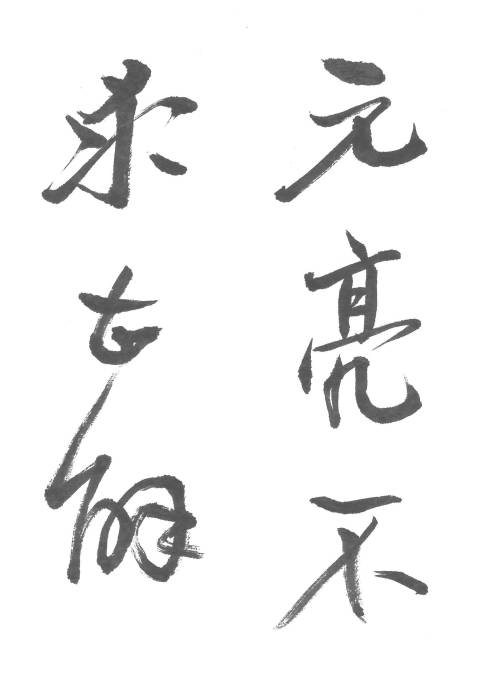 元亮不
求甚解